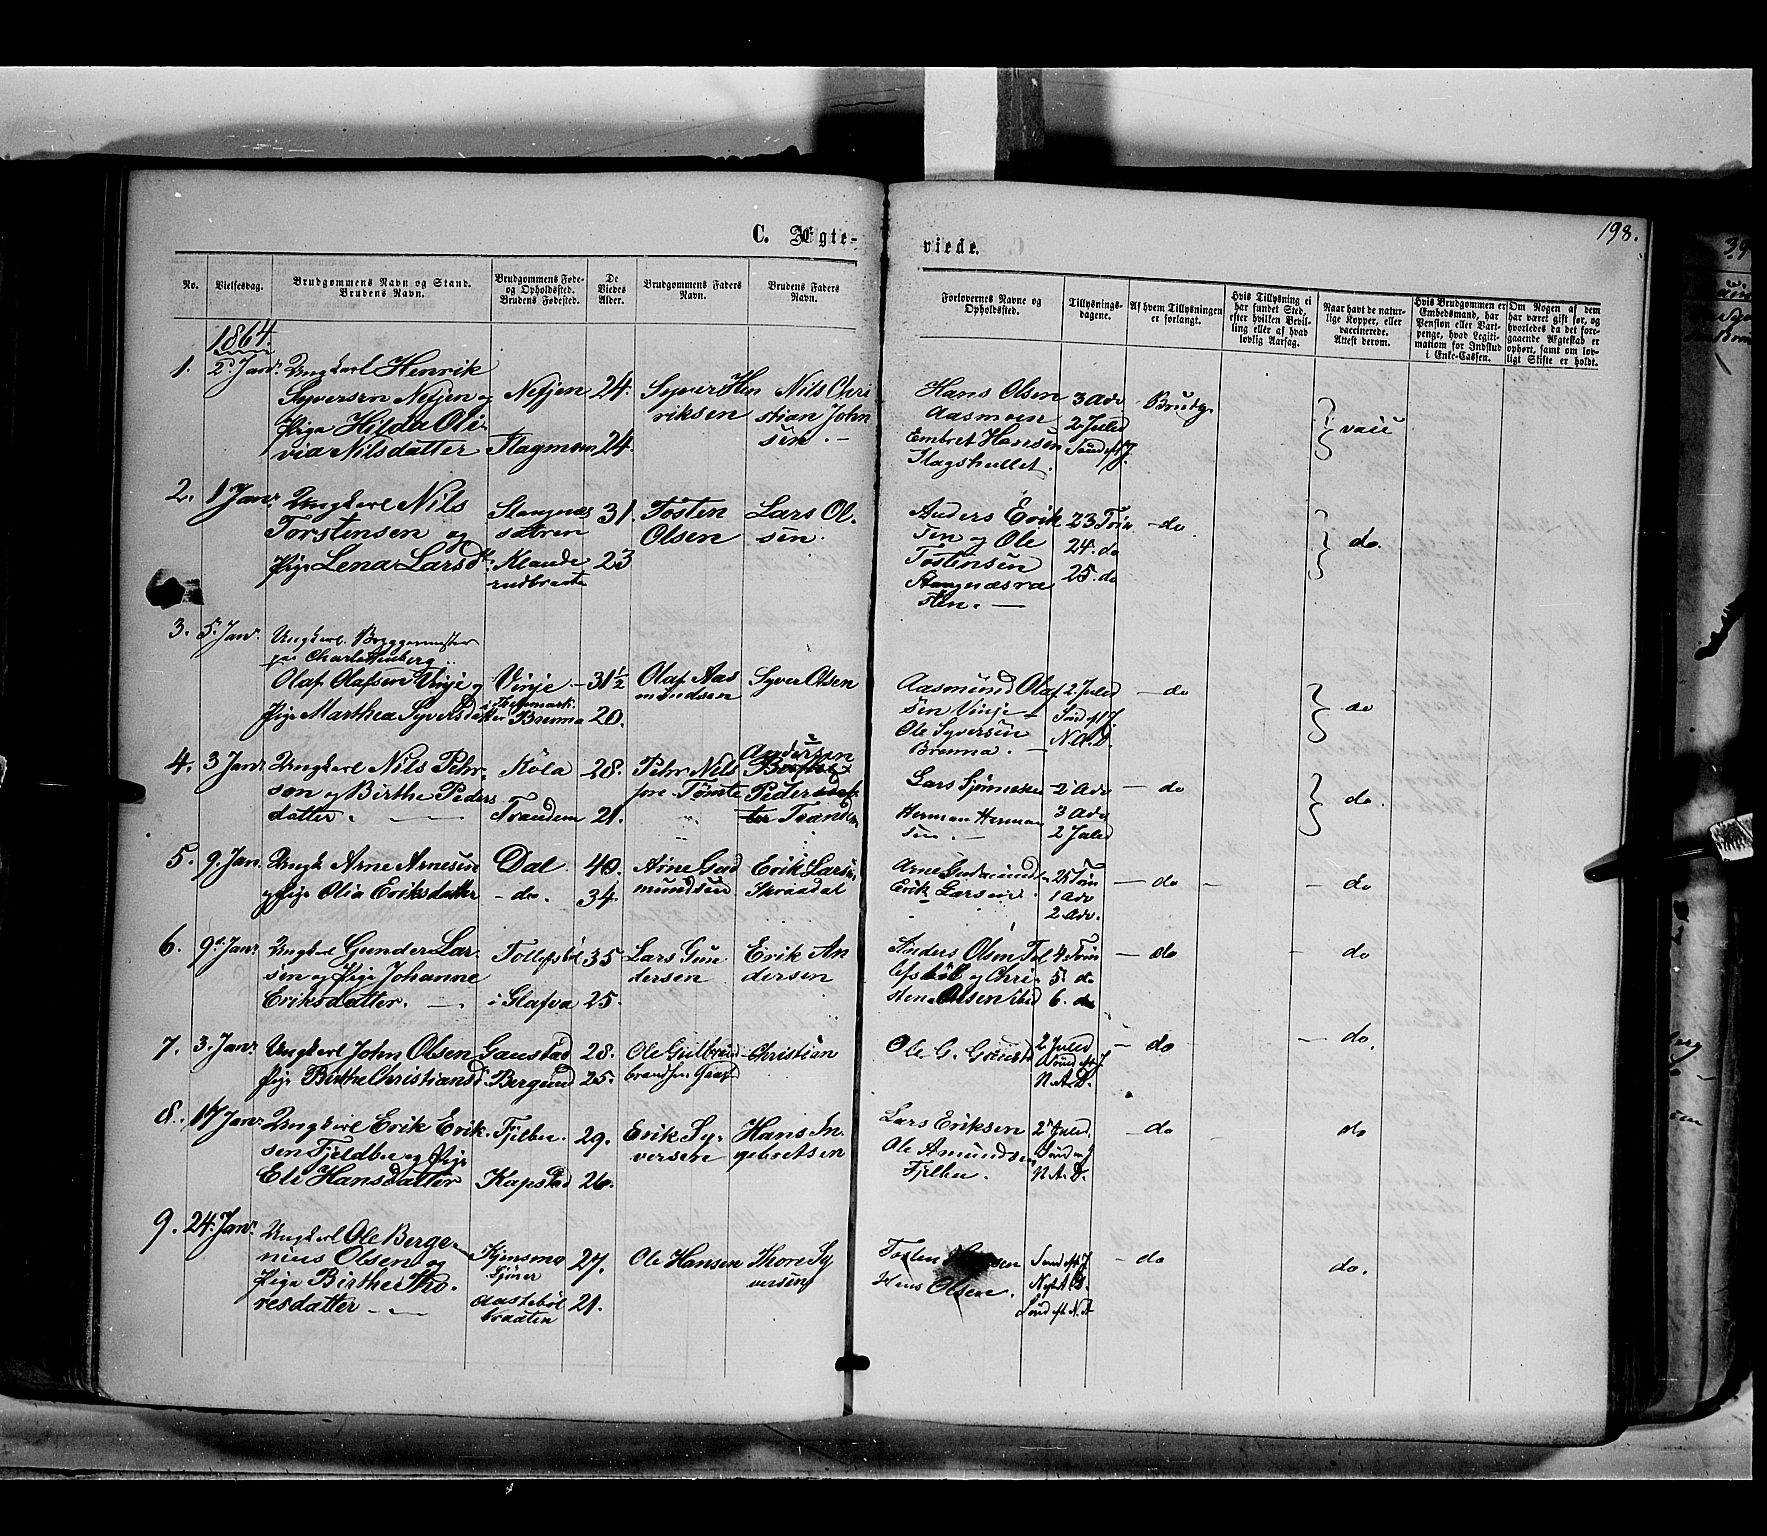 198.
C. Ægte-
viede.
No.
Vielsesdag.
Brudgommens Navn og Stand.
Brudens Navn.
Brudgommens Føde-
og Opholdsted.
Brudens Fødested.
De
Viedes
Alder.
Brudgommens Faders
Navn.
Brudens Faders
Navn.
Forlovernes Navne og
Opholdsted.
Tillysnings-
dagene.
Af hvem Tillysningen
er forlangt.
Hvis Tillysning ei
har fundet Sted,
efter hvilken Bevil-
ling eller af hvad
lovlig Aarsag.
Naar havt de natur-
lige Kopper, eller
vaccinerede.
Attest derom.
Hvis Brudgommen er
Embedsmand, har
Pension eller Vart-
penge, hvad Legiti-
mation for Indskud
i Enke-Cassen.
Om Nogen af dem
har været gift før, og
hvorledes da det fore-
gaaende Ægtestad er
ophørt, samt om lov-
ligt Skifte er holdt.
1864.
1. 2 Janr. Ungkarl Henrik
Syversen Nefjen og
Pige Hilda Oli-
via Nilsdatter
Nefjen
Flagmoen
24.
24.
Syver Hen
riksen
Nils Chri
stian John
sen. -
Hans Olsen
Aasmoen
Embret Hansen
3 Adv
2 Juled
Brudg.
vacc
2. 1 Janr. Ungkarl Nils
Torstensen og
Pige Lena Larsd.
Stangnæs
31.
23
Tosten
Olsen
Lars Ol-
sen.
Anders Erik
sen og Ole
Tostensen
sten. -
23 Trin
24. do
25. do
do
do.
3. 5. Janr. Ungkarl Bryggemester
paa Charlottenberg
Olaf Olafsen Vinje og
Pige Marthea Syversdatter
Vinje
i Thelemark.
Brenna
31 1/2
20.
Olaf Aas
mundsen
Syver Olsen
Aasmund Olaf
sen Vinje
Ole Syversen
Brenna. -
2 Juled
Sønd. eft J.
N. A. D.
do
do
4. 3 Janr. Ungkarl Nils Pehr-
son og Birthe Peders
datter.
Köla
Trandem
28.
21.
Pehr Nils
son Tomte
Andersen
Peder
Trandem
Lars
Herman Herman
sen. -
2 Adv
3 Adv
2 Juled
do
do.
5. 9. Jan. Ungk Arne Arnesen
og Pige Olia Eriksdatter
Dal
do.
40.
34.
Arne Gud
mundsen
Erik Larsen
Skraadal
Arne Gudmunds
Erik Larsen
25 Trin
1 Adv
2 Adv.
do
do
6. 9. Janr. Ungkarl Gunder Lar-
sen og Pige Johanne
Eriksdatter.
Tollefsböl
i Glafva
35
25.
Lars Gun
dersen
Erik An
dersen
Anders Olsen Tol
lefsböl og Chri-
sten Olsen ibid
4. Trin
5. do
6. do
do
do
7. 3. Janr. Ungkarl John Olsen
Pige Birthe Christiansd.
Gaustad
Bergerud
28.
25.
Ole Gulbrand
Christian
Ole G. Gaustad
2 Juled
Sønd eft J
N. A. D.
do
do.
8. 17 Janr. Ungkarl Erik Erik-
sen Fjeldbu og Pige
Eli Hansdatter
Fjelbu.
Kapstad
29.
26.
Erik Sy-
versen
Hans In-
gebretsen
Lars Eriksen
Ole Amundsen
Fjelbu.
2 Juled.
Sønd eft J
N. A. D.
do
do
9. 24. Janr. Ungkarl Ole Berge-
nius Olsen og
Pige Birthe Tho-
resdatter
Kjensmo
Aasteböl
braaten
27.
21.
Ole Hansen
Thore Sy
versen
Tosten
Hans Olsen.
Sønd eft J
Sønd eft N. A
do
do.